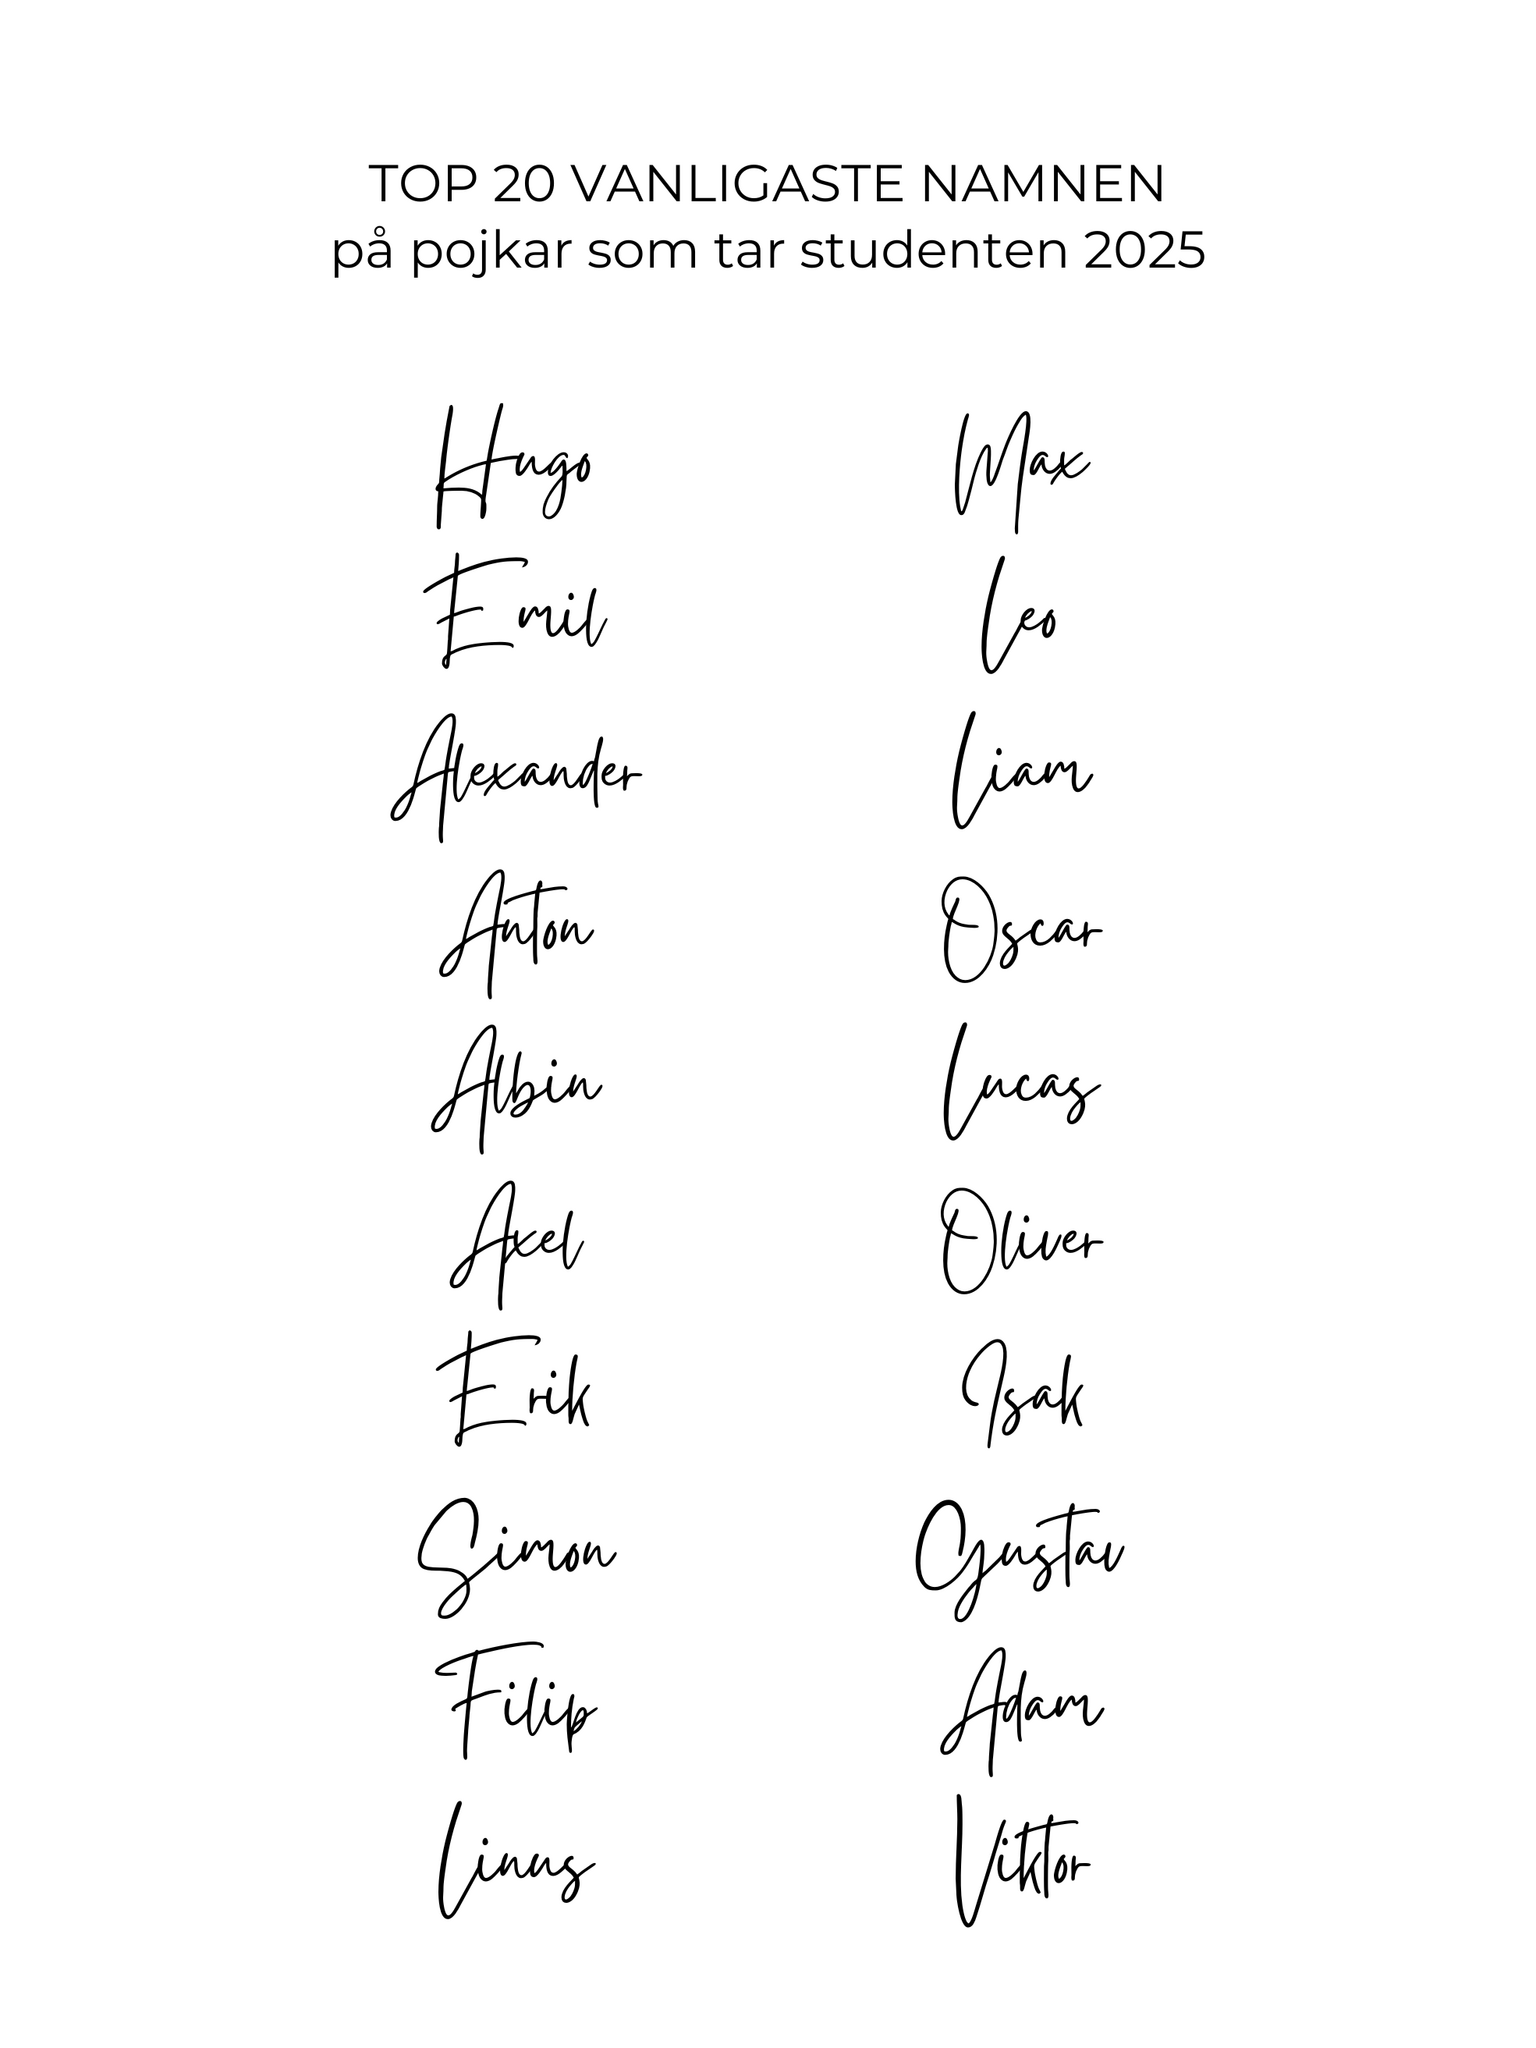 TOP 20 VANLIGASTE NAMNEN
på pojkar som tar studenten 2025
Hugo
Emil
Alexander
Anton
Albin
Axel
Erik
Simon
Filip
Linus
Max
Leo
Liam
Oscar
Lucas
Oliver
Isak
Gustav
Adam
Viktor